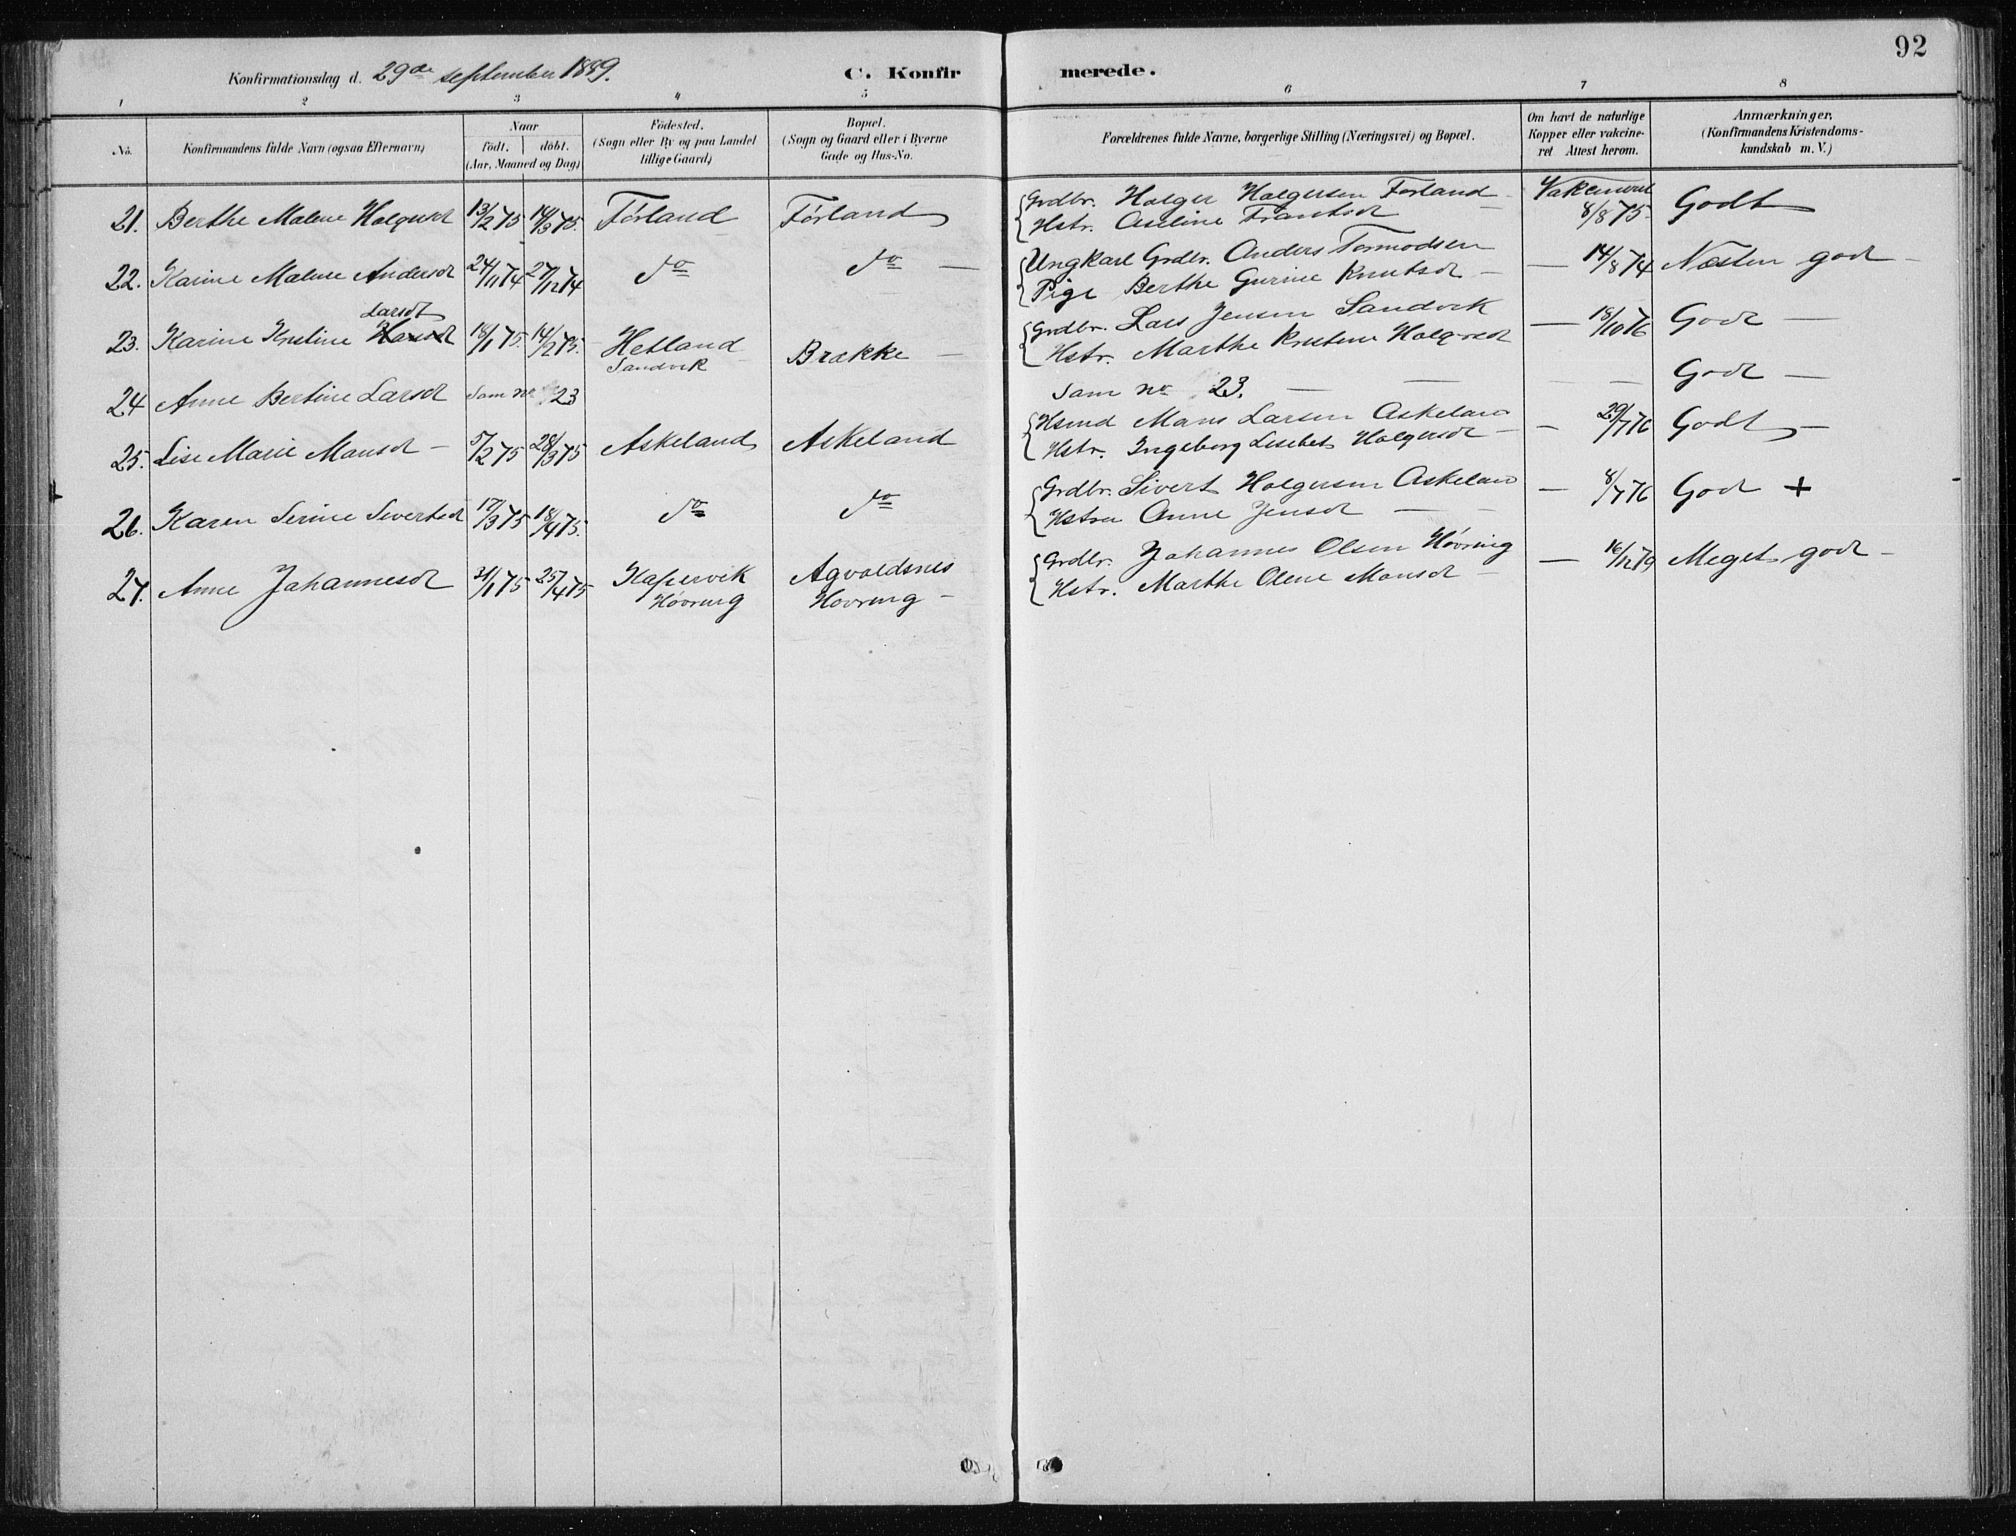 92
Konfirmationsdag d. 29de september 1889.
C. Konfir
merede.
1 2 3 4 5 6 7 8
No.
Konfirmandens fulde Navn (ogsaa Efternavn)
Naar
født. døbt.
(Aar, Maaned og Dag)
Fødested.
(Sogn eller By og paa Landet
tillige Gaard)
Bopæl.
(Sogn og Gaard eller i Byerne
Gade og Hus-No.
Forældrenes fulde Navne, borgerlige Stilling (Næringsvei) og Bopæl.
Om havt de naturlige
Kopper eller vakcine-
ret Attest herom.
Anmærkninger,
(Konfirmandens Kristendoms-
kundskab m. V.)
21. Berthe Malene Holgersdt 13/2 75 14/3 75. Førland Førland
Grdbr. Holger Holgersen Førland
Hstr. Aseline Frantsdt
8/8 75 Godt
22. Karine Malene Andersdt 24/11 74 27/12 74 do do
Ungkarl Grdbr. Anders Tormodsen
Pige Berthe Gurine Knutsdt
14/8 74 Næsten god
Larsdt
23. Karine Kristine 18/1 75. 14/2 75. Hetland Brække
Sandvik
Grdbr. Lars Jensen Sandvik
Hstr. Marthe Kristene Holgersdt
18/10 76 God
24 Anne Bertine Larsdt Som no 23
Som no 23. God
25. Lise Marie Monsdt 5/2 75 28/3 75 Askeland Askeland
Hsmd Mons Larsen Askeland
Hstr. Ingeborg Lisebet Holgersdt
29/7 76 Godt
26. Karen Serine Sivertsdt 17/3 75 18/4 75. do do
Grdbr. Sivert Holgersen Askeland
Hstru Anne Jensdt
8/7 76 God +
27. Anne Johannesdt 31/1 75 25/4 75 Kopervik Agvaldsnes
Høvring Høvring
Grdbr. Johannes Olsen Høvring
Hstr. Marthe Olene Monsdt
16/12 79 Meget god